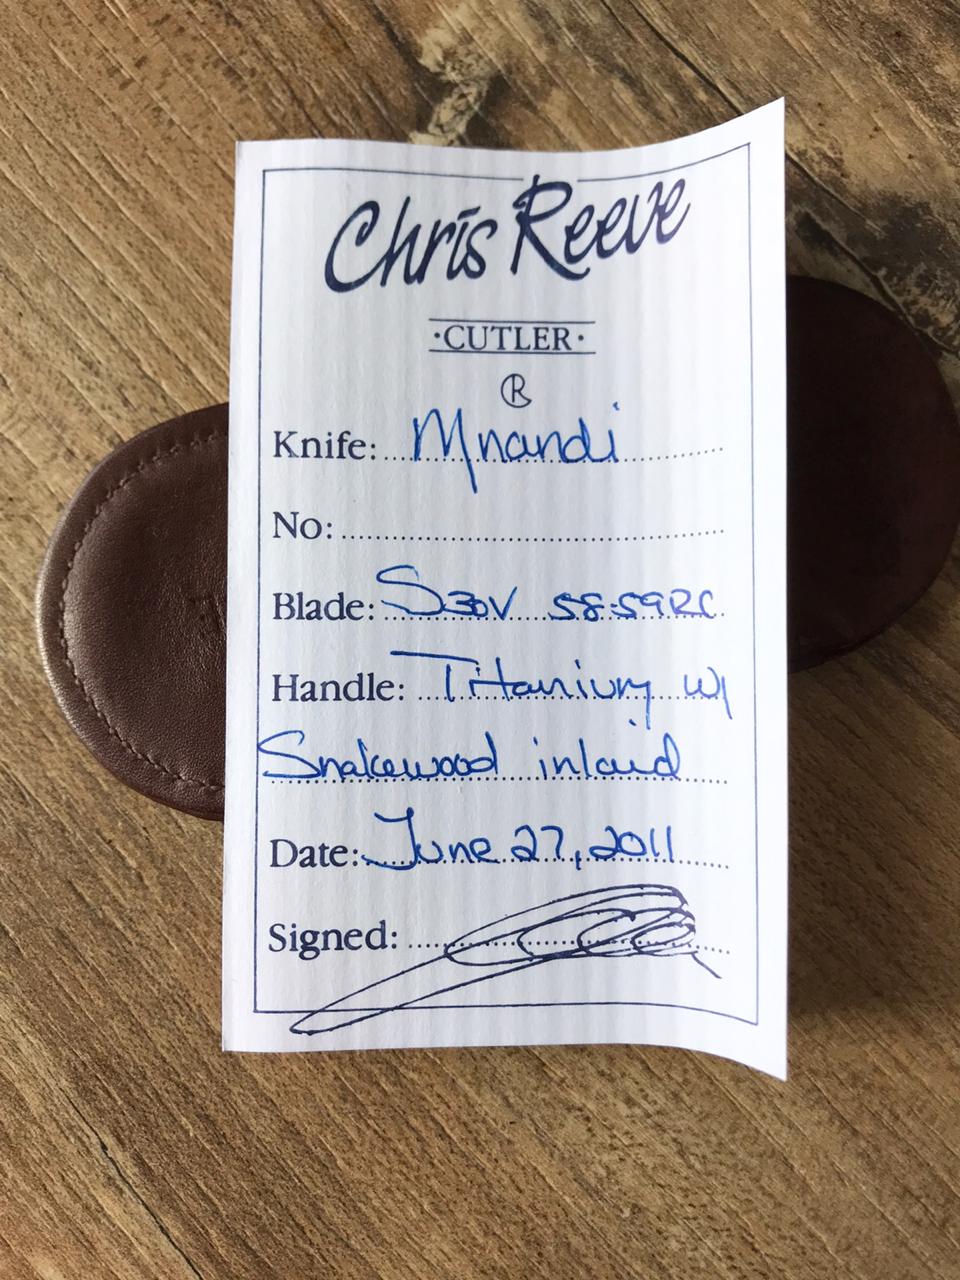 Chris Reeve
·CUTLER·
Knife: Mnandi
No:
Blade: S30V 58-59RC
Handle: Titanium w/
Snakewood inlaid
Date: June 27, 2011
Signed: